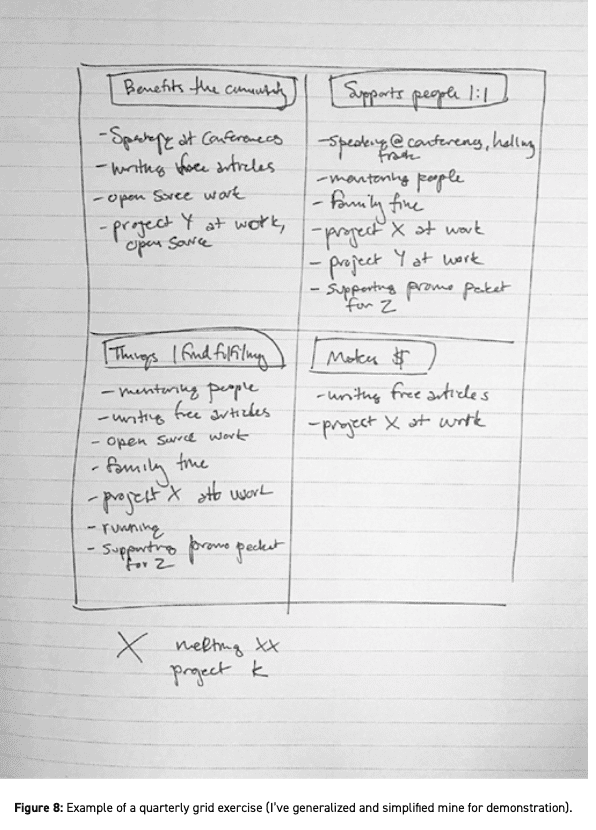 Benefits the community
- Speaking at conferences
- writing free articles
- open source work
- project Y at work,
open source
Supports people 1:1
- speaking @ conferences, hallway
track
- mentoring people
- family time
- project X at work
- project Y at work
- supporting promo packet
for Z
Things I find fulfilling
- mentoring people
- writing free articles
- open source work
- family time
- project X at work
- running
- supporting promo packet
for Z
Makes $
- writing free articles
- project X at work
X meeting XX
project K
Figure 8: Example of a quarterly grid exercise (I've generalized and simplified mine for demonstration).